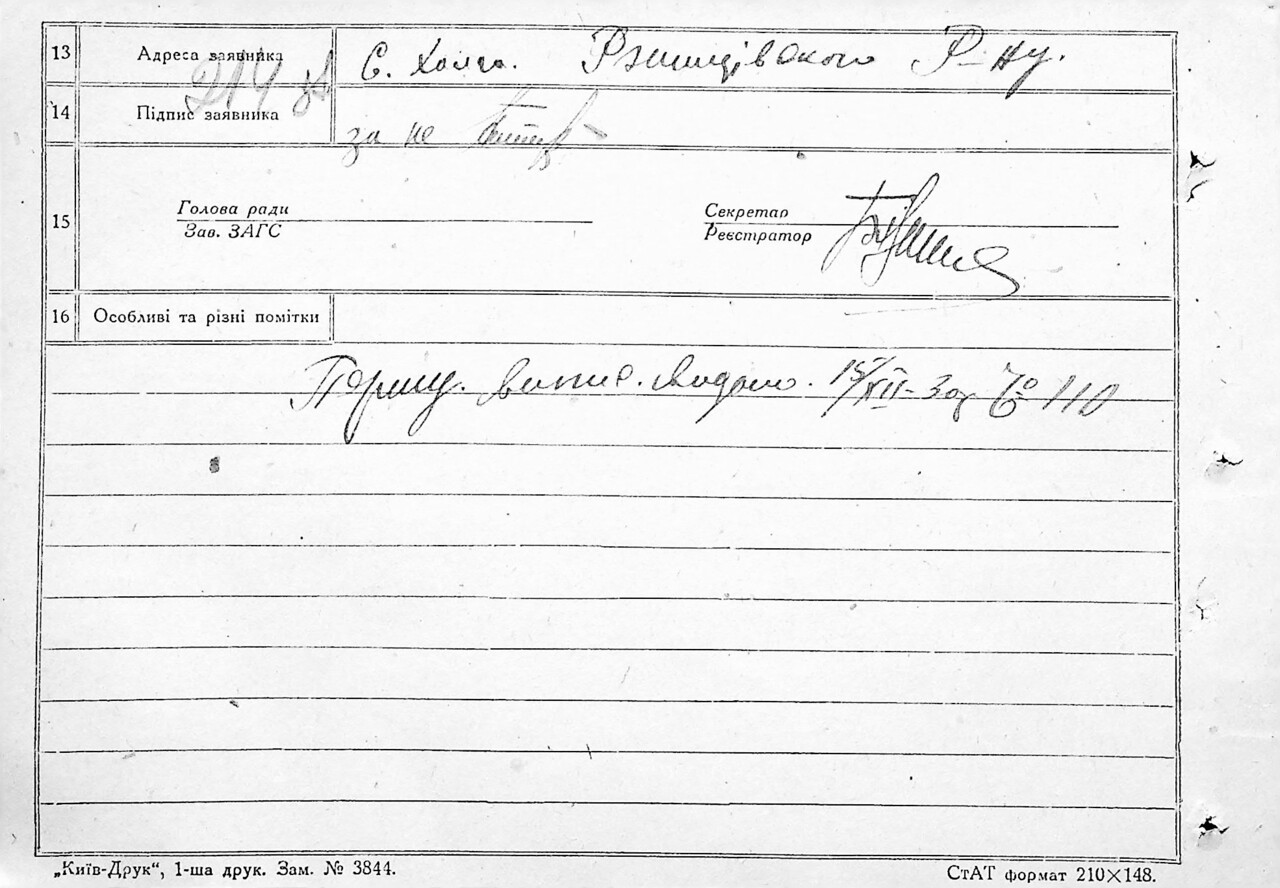 13 Адреса заявника С. Р-ну.
214
14 Підпис заявника за не
15 Голова ради Секретар
Зав. ЗАГС Реєстратор
16 Особливі та різні помітки
Першу. випис. видано. 15/XII-30р № 110
„Київ-Друк“, 1-ша друк. Зам. № 3844. СтАТ формат 210×148.